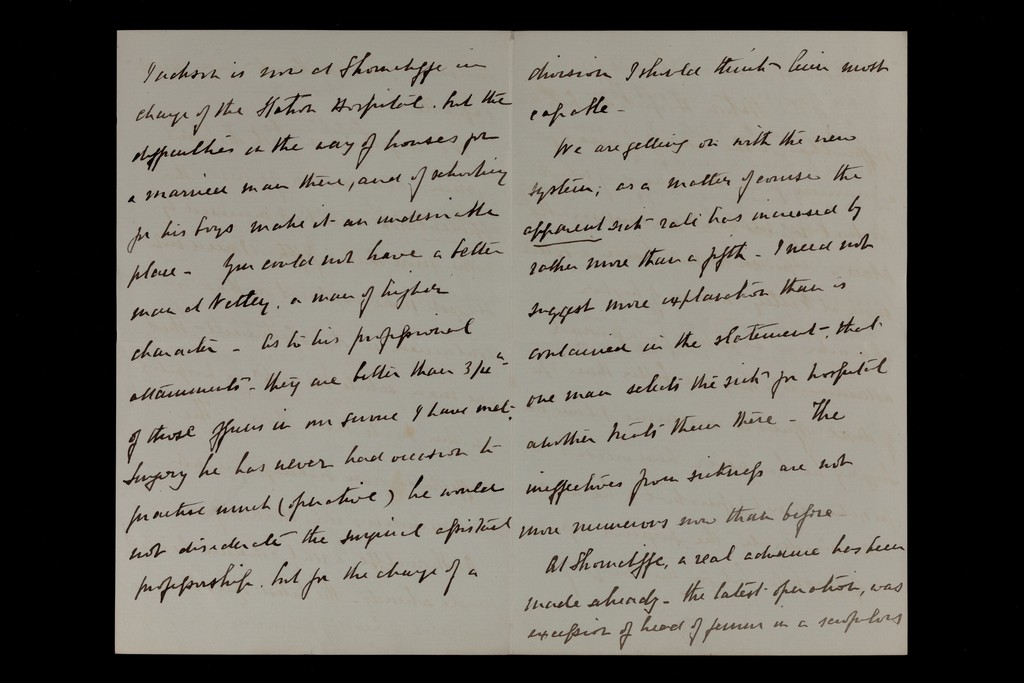 Jackson is now at Shorncliffe in
charge of the Station Hospital. but the
difficulties in the way of houses for
a married man there, and of schooling
for his boys make it an undesirable
place - You could not have a better
man at Netley. a man of higher
character - As to his professional
attainments - they are better than 3/4ths
of those officers in our service I have met.
Surgery he has never had occasion to
practise much (operative) he would
not desiderate the surgical assistant
professorship. but for the charge of a
division I should think him most
capable -
We are getting on with the new
system; as a matter of course the
apparent sick rate has increased by
rather more than a fifth - I need not
suggest more explanation than is
contained in the statement, that
one man selects the sick for hospital
another treats them there - The
ineffectives from sickness are not
more numerous now than before
At Shorncliffe, a real advance has been
made already - the latest operation, was
excission of head of femur in a scrofulous